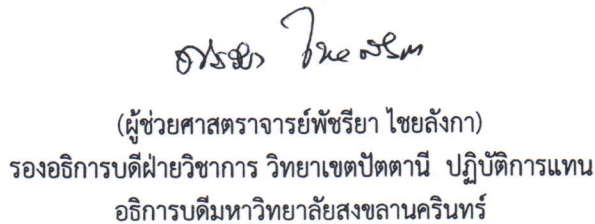 (ผู้ช่วยศาสตราจารย์พัชรียา ไชยลังกา)
รองอธิการบดีฝ่ายวิชาการ วิทยาเขตปัตตานี ปฏิบัติการแทน
อธิการบดีมหาวิทยาลัยสงขลานครินทร์